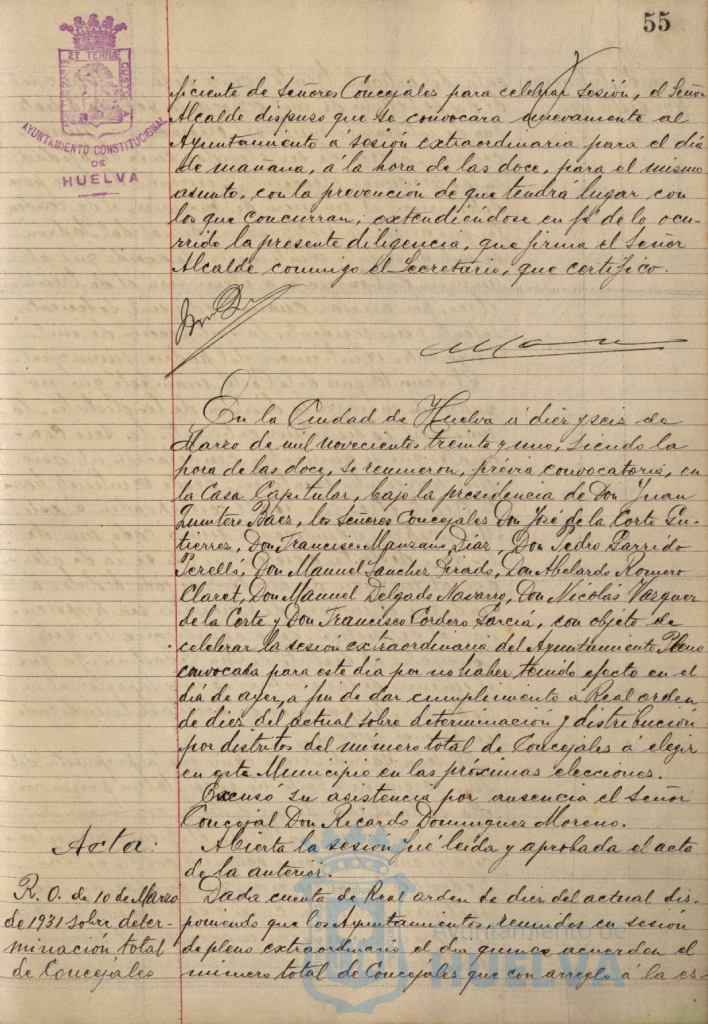 55
ET TERRÆ CUSTO
AYUNTAMIENTO CONSTITUCIONAL
DE
HUELVA
ficiente de Señores Concejales para celebrar sesión, el Señor
Alcalde dispuso que se convocára nuevamente al
Ayuntamiento á sesión extraordinaria para el dia
de mañana, á la hora de las doce, para el mismo
asunto, con la prevención de que tendrá lugar con
los que concurran; extendiéndose en fé de lo ocu-
rrido la presente diligencia, que firma el Señor
Alcalde conmigo el Secretario, que certifico.
En la Ciudad de Huelva á diez y seis de
Marzo de mil novecientos treinta y uno, siendo la
hora de las doce, se reunieron, prévia convocatoria, en
la Casa Capitular, bajo la presidencia de Don Juan
Quintero Báez, los Señores Concejales Don José de la Corte Gu-
tierrez, Don Francisco Manzano Díaz, Don Pedro Garrido
Perelló, Don Manuel Sanchez Tirado, Don Abelardo Romero
Claret, Don Manuel Delgado Navarro, Don Nicolás Vazquez
de la Corte y Don Francisco Cordero García, con objeto de
celebrar la sesión extraordinaria del Ayuntamiento Pleno
convocada para este día por no haber tenido efecto en el
día de ayer, á fin de dar cumplimiento á Real orden
de diez del actual sobre determinación y distribución
por distritos del número total de Concejales á elegir
en este Municipio en las próximas elecciones.
Excusó su asistencia por ausencia el Señor
Concejal Don Ricardo Dominguez Moreno.
Acta:
Abierta la sesión fué leída y aprobada el acta
de la anterior.
R. O. de 10 de Marzo
de 1931 sobre deter-
minación total
de Concejales
Dada cuenta de Real orden de diez del actual dis-
poniendo que los Ayuntamientos, reunidos en sesión
de pleno extraordinario el dia quince acuerden el
número total de Concejales que con arreglo á la es-
HUELVA